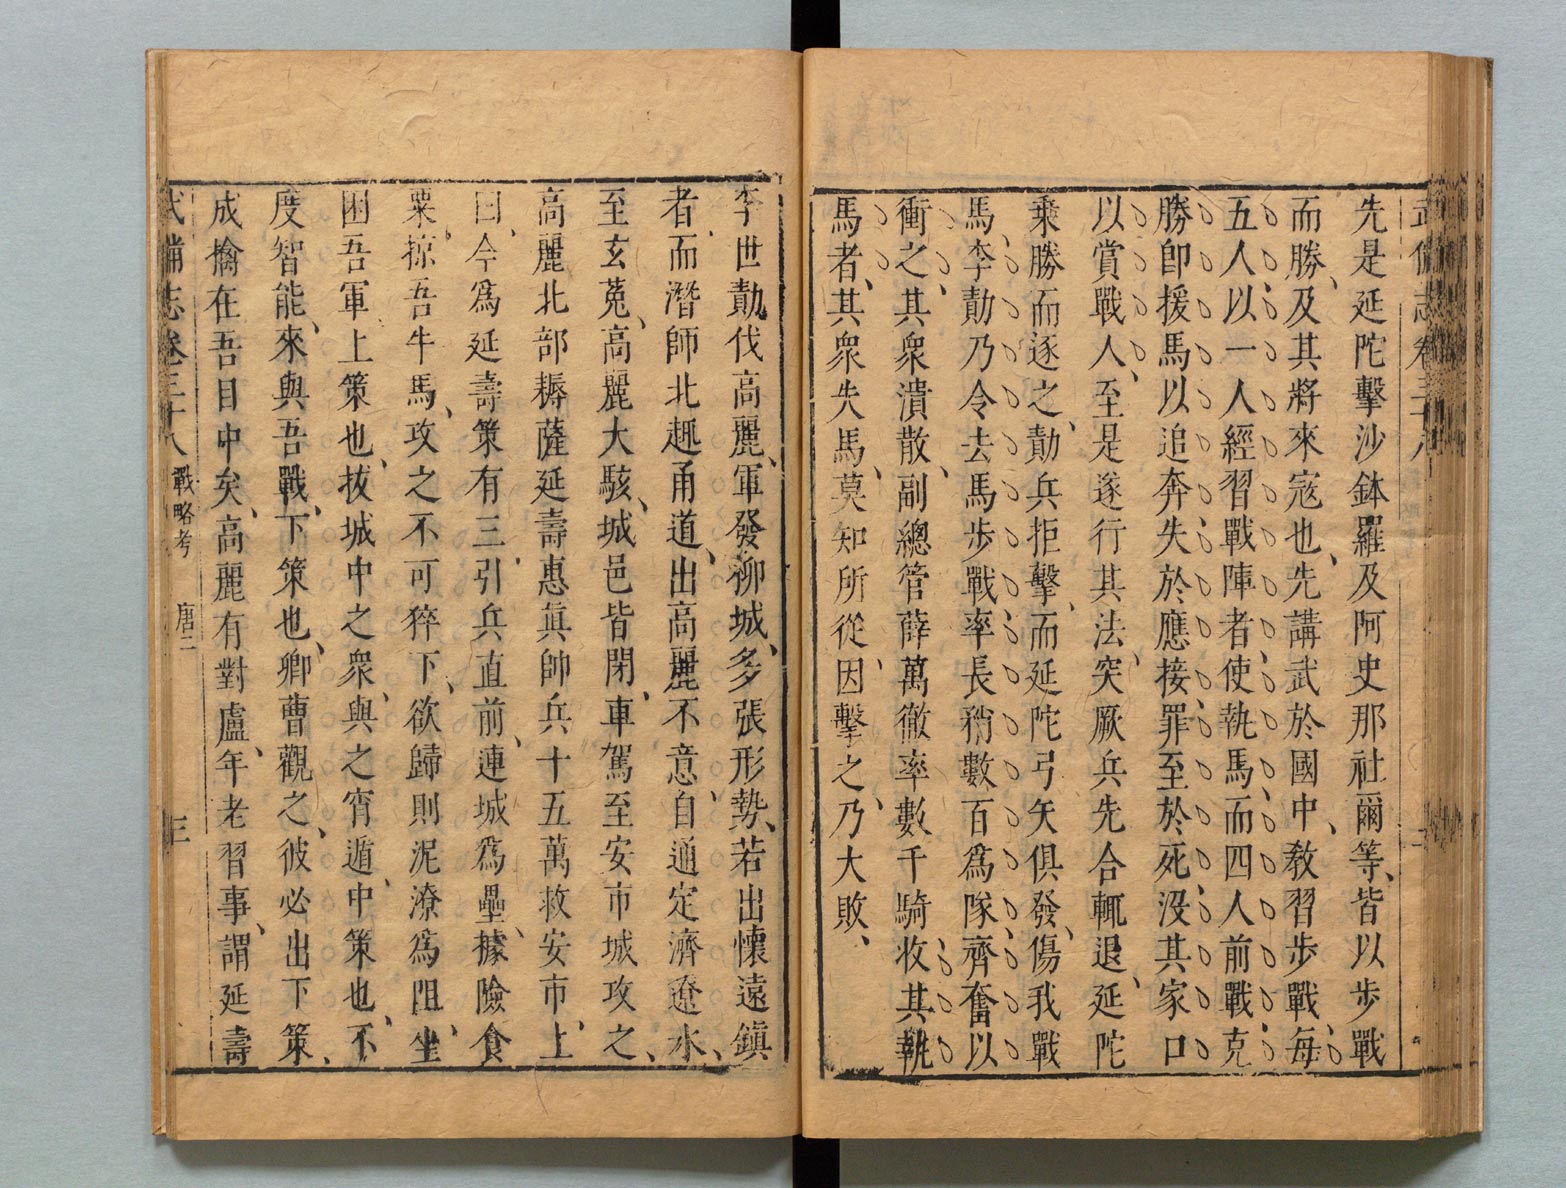 武備志卷三十八
先是延陀擊沙鉢羅及阿史那社爾等皆以步戰
而勝及其將來寇也先講武於國中教習步戰每
五人以一人經習戰陣者使執馬而四人前戰克
勝卽援馬以追奔失於應接罪至於死沒其家口
以賞戰人至是遂行其法突厥兵先合輒退延陀
乘勝而逐之勣兵拒擊而延陀弓矢俱發傷我戰
馬李勣乃令去馬步戰率長矟數百爲隊齊奮以
衝之其衆潰散副總管薛萬徹率數千騎收其執
馬者其衆失馬莫知所從因擊之乃大敗
李世勣伐高麗軍發柳城多張形勢若出懷遠鎮
者而潛師北趣甬道出高麗不意自通定濟遼水
至玄菟高麗大駭城邑皆閉車駕至安市城攻之
高麗北部耨薩延壽惠眞帥兵十五萬救安市上
曰今爲延壽策有三引兵直前連城爲壘據險食
粟掠吾牛馬攻之不可猝下欲歸則泥潦爲阻坐
困吾軍上策也拔城中之衆與之宵遁中策也不
度智能來與吾戰下策也卿曹觀之彼必出下策
成擒在吾目中矣高麗有對盧年老習事謂延壽
武備志卷三十八 戰略考 唐二 三